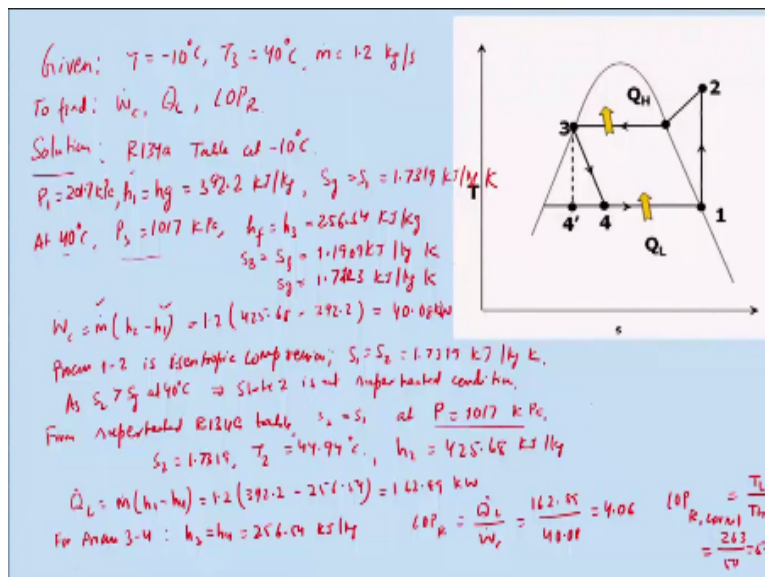 Given: T = -10°C, T3 = 40°C, ṁ = 1.2 kg/s
To find: Ẇc, Q̇L, COPR
Solution: R134a Table at -10°C.
P1 = 201.7 kPc, h1 = hg = 392.2 kJ/kg, Sg = S1 = 1.7319 kJ/kg K
At 40°C, P3 = 1017 kPc, hf = h3 = 256.54 kJ/kg
S3 = Sf = 1.1909 kJ/kg K
Sg = 1.7123 kJ/kg K
Ẇc = ṁ(h2-h1) = 1.2(425.68 - 392.2) = 40.08 kW
Process 1-2 is isentropic compression; S1 = S2 = 1.7319 kJ/kg K.
As S2 > Sg at 40°C ⇒ State 2 is at superheated condition.
From superheated R134a table S2 = S1 at P = 1017 kPc,
S2 = 1.7319, T2 = 44.94°C, h2 = 425.68 kJ/kg
Q̇L = ṁ(h1-h4) = 1.2(392.2 - 256.54) = 162.89 kW
For Process 3-4: h3 = h4 = 256.54 kJ/kg
COPR = Q̇L/Ẇc = 162.89/40.08 = 4.06
COPR, carnot = TL/TH
= 263/50 =
T
QH
2
3
4'
4
1
QL
s